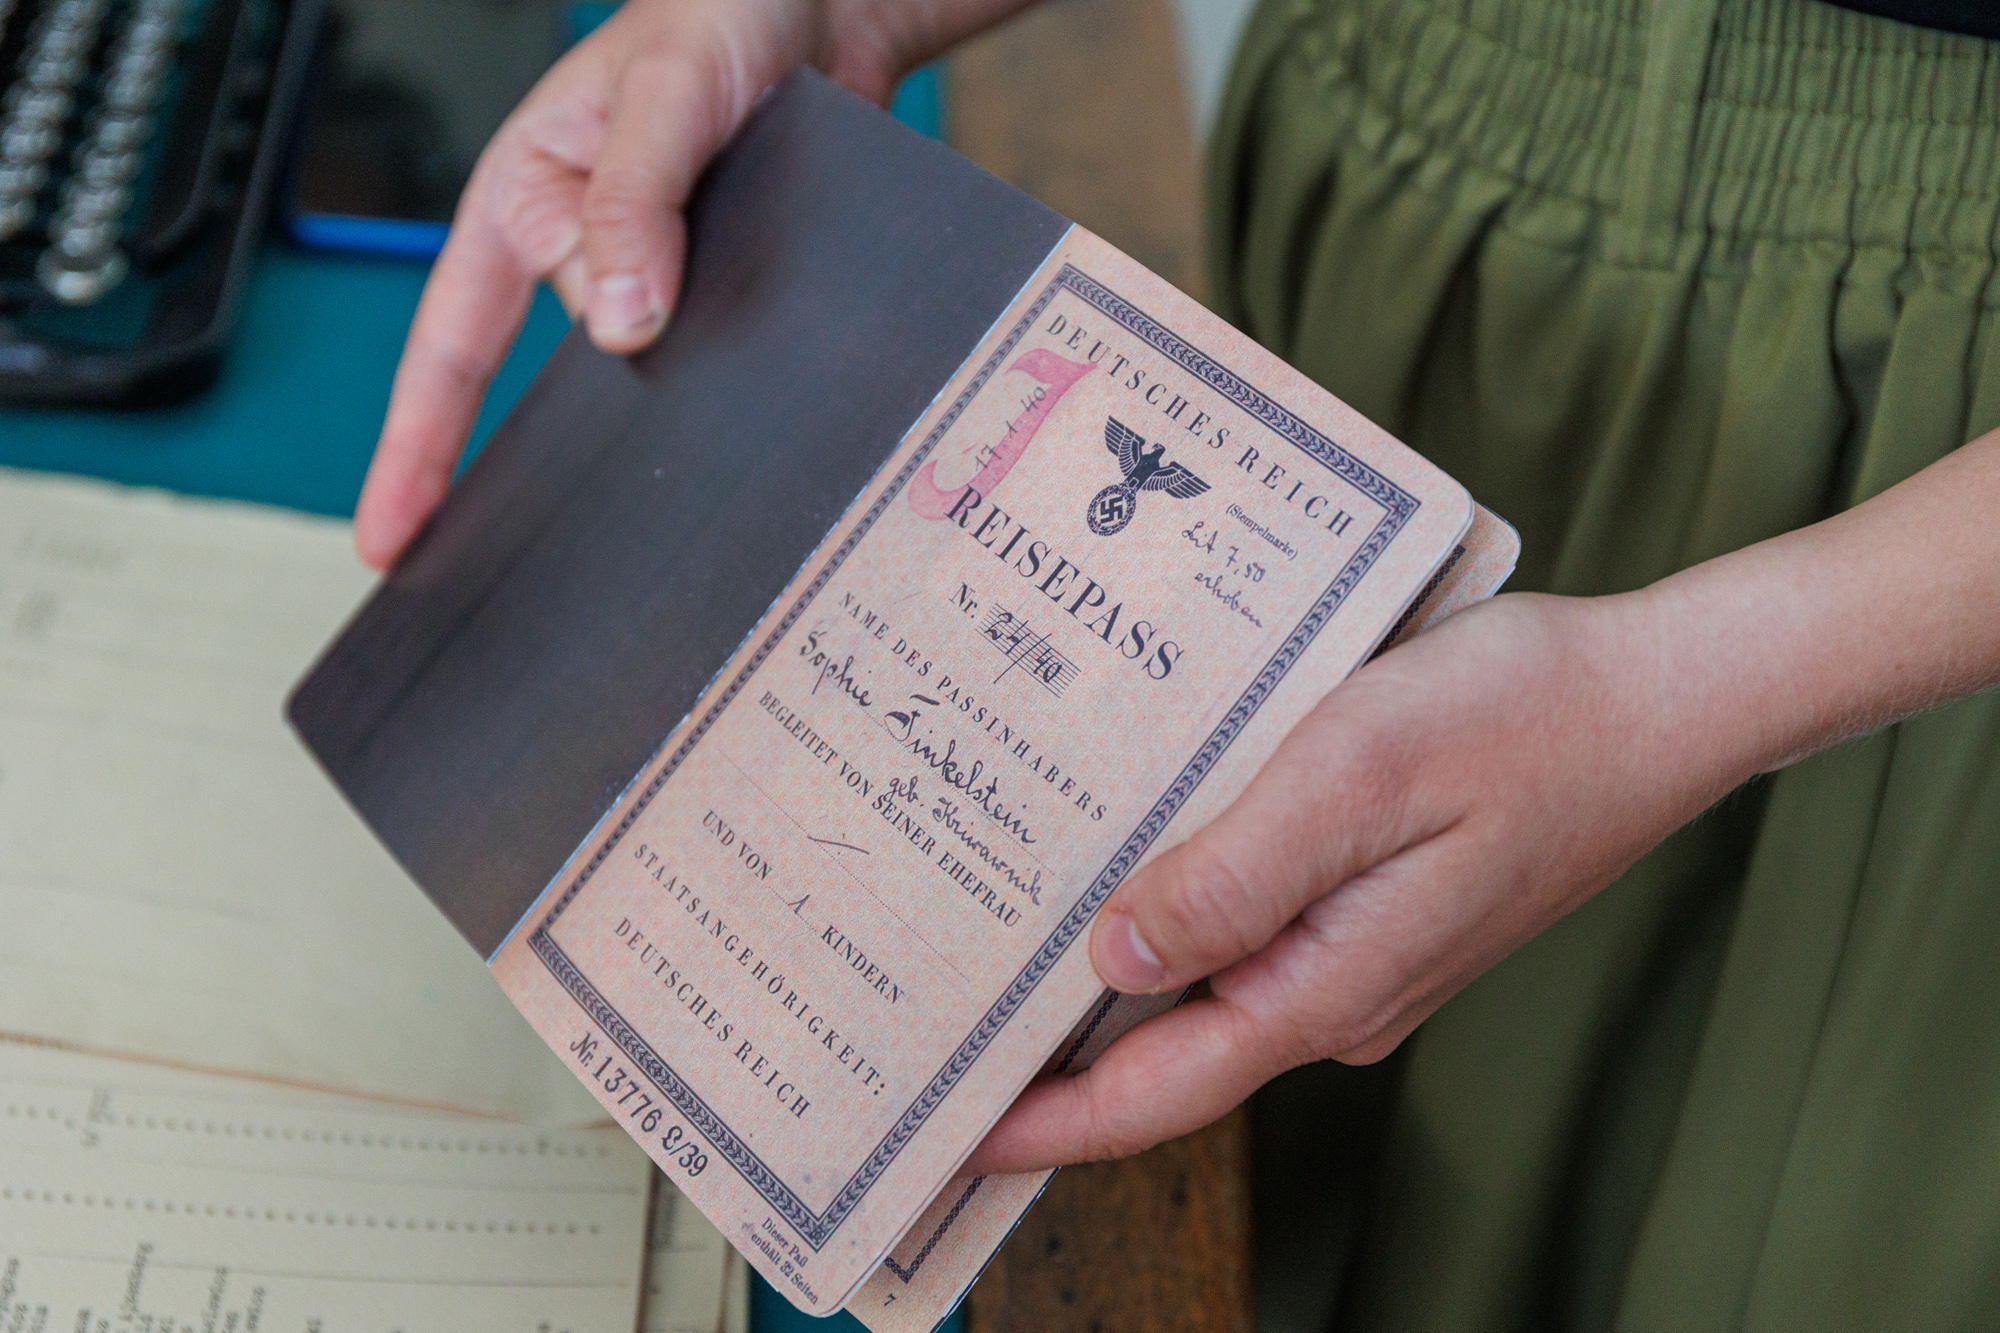 DEUTSCHES REICH
J
17.1.40
(Stempelmarke)
Lit 7,50
erhoben
REISEPASS
Nr. 24/40
NAME DES PASSINHABERS
Sophie Finkelstein
geb. Kriwarnik
BEGLEITET VON SEINER EHEFRAU
UND VON 1 KINDERN
STAATSANGEHÖRIGKEIT:
DEUTSCHES REICH
Nr. 13776 /39
Dieser Paß
enthält 32 Seiten
7